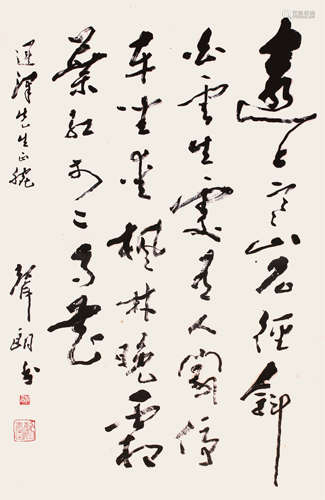 遠上寒山石徑斜
白雲生處有人家停
車坐愛楓林晚霜
葉紅於二月花
先生正腕
書